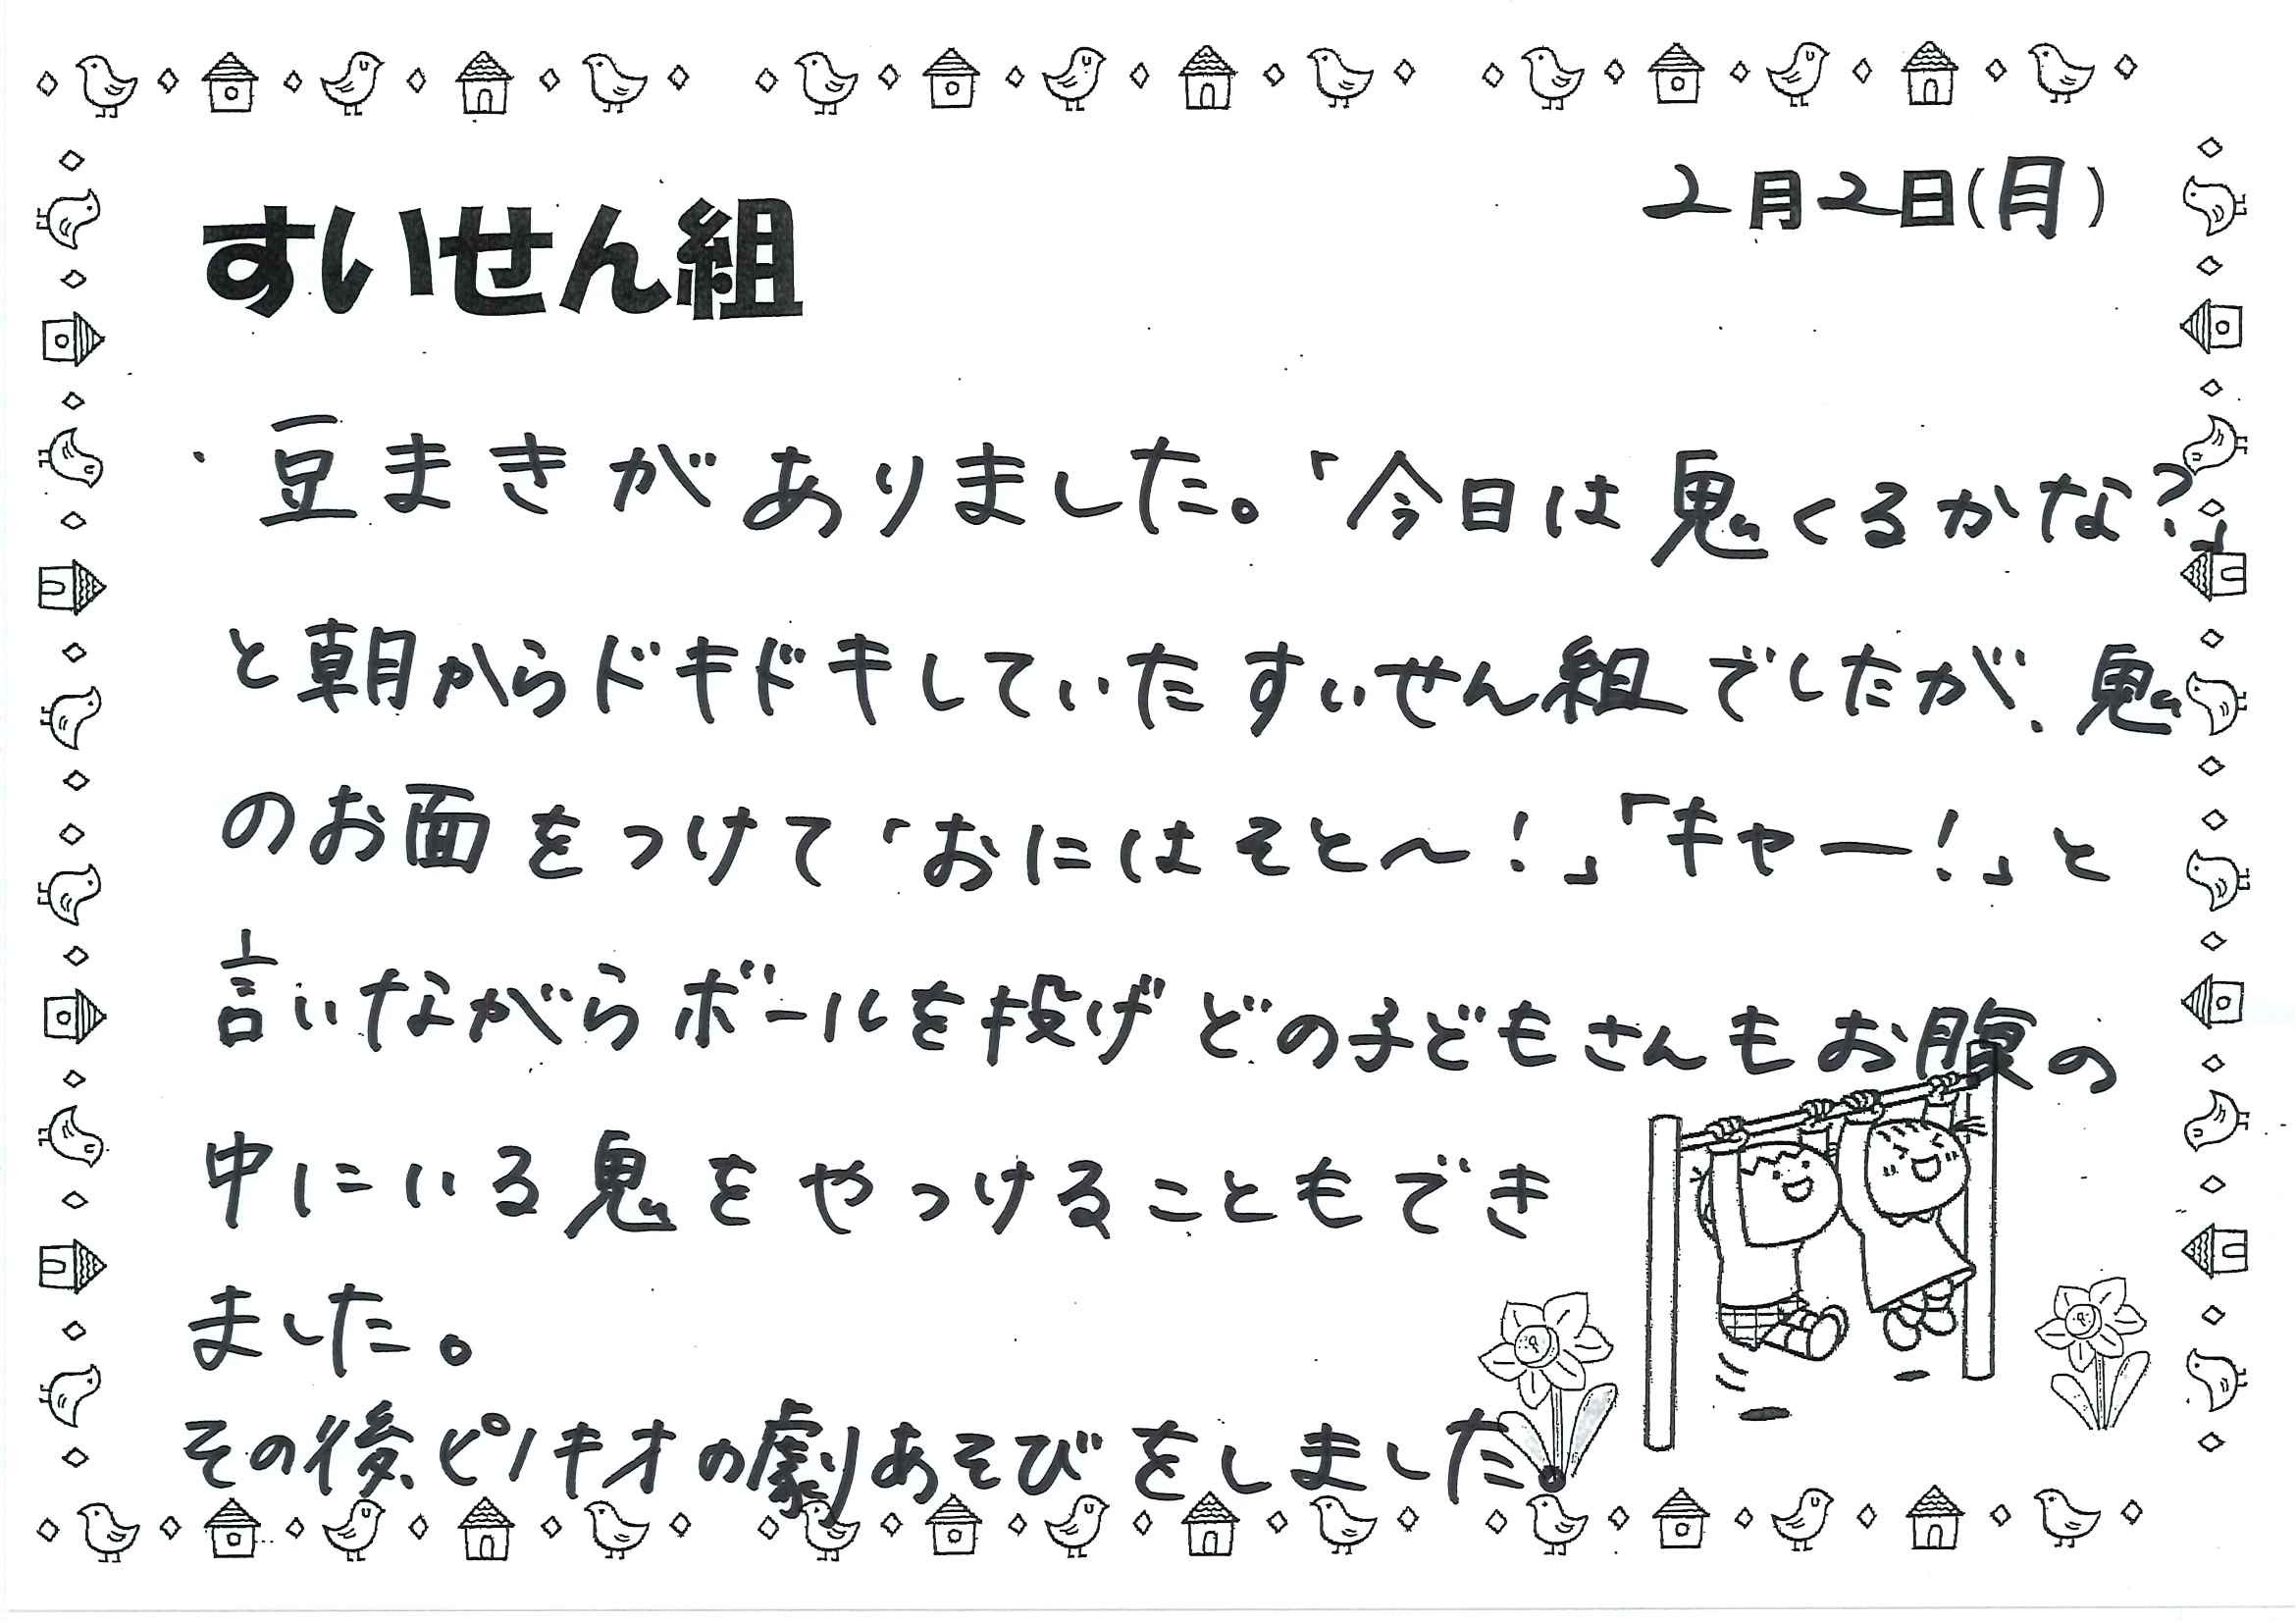 2月2日(月)
すいせん組
・豆まきがありました。「今日は鬼くるかな?」
と朝からドキドキしていたすいせん組でしたが、鬼
のお面をつけて「おにはそと〜!」「キャー!」と
言いながらボールを投げどの子どもさんもお腹の
中にいる鬼をやっつけることもでき
ました。
その後、ピノキオの劇あそびをしました。